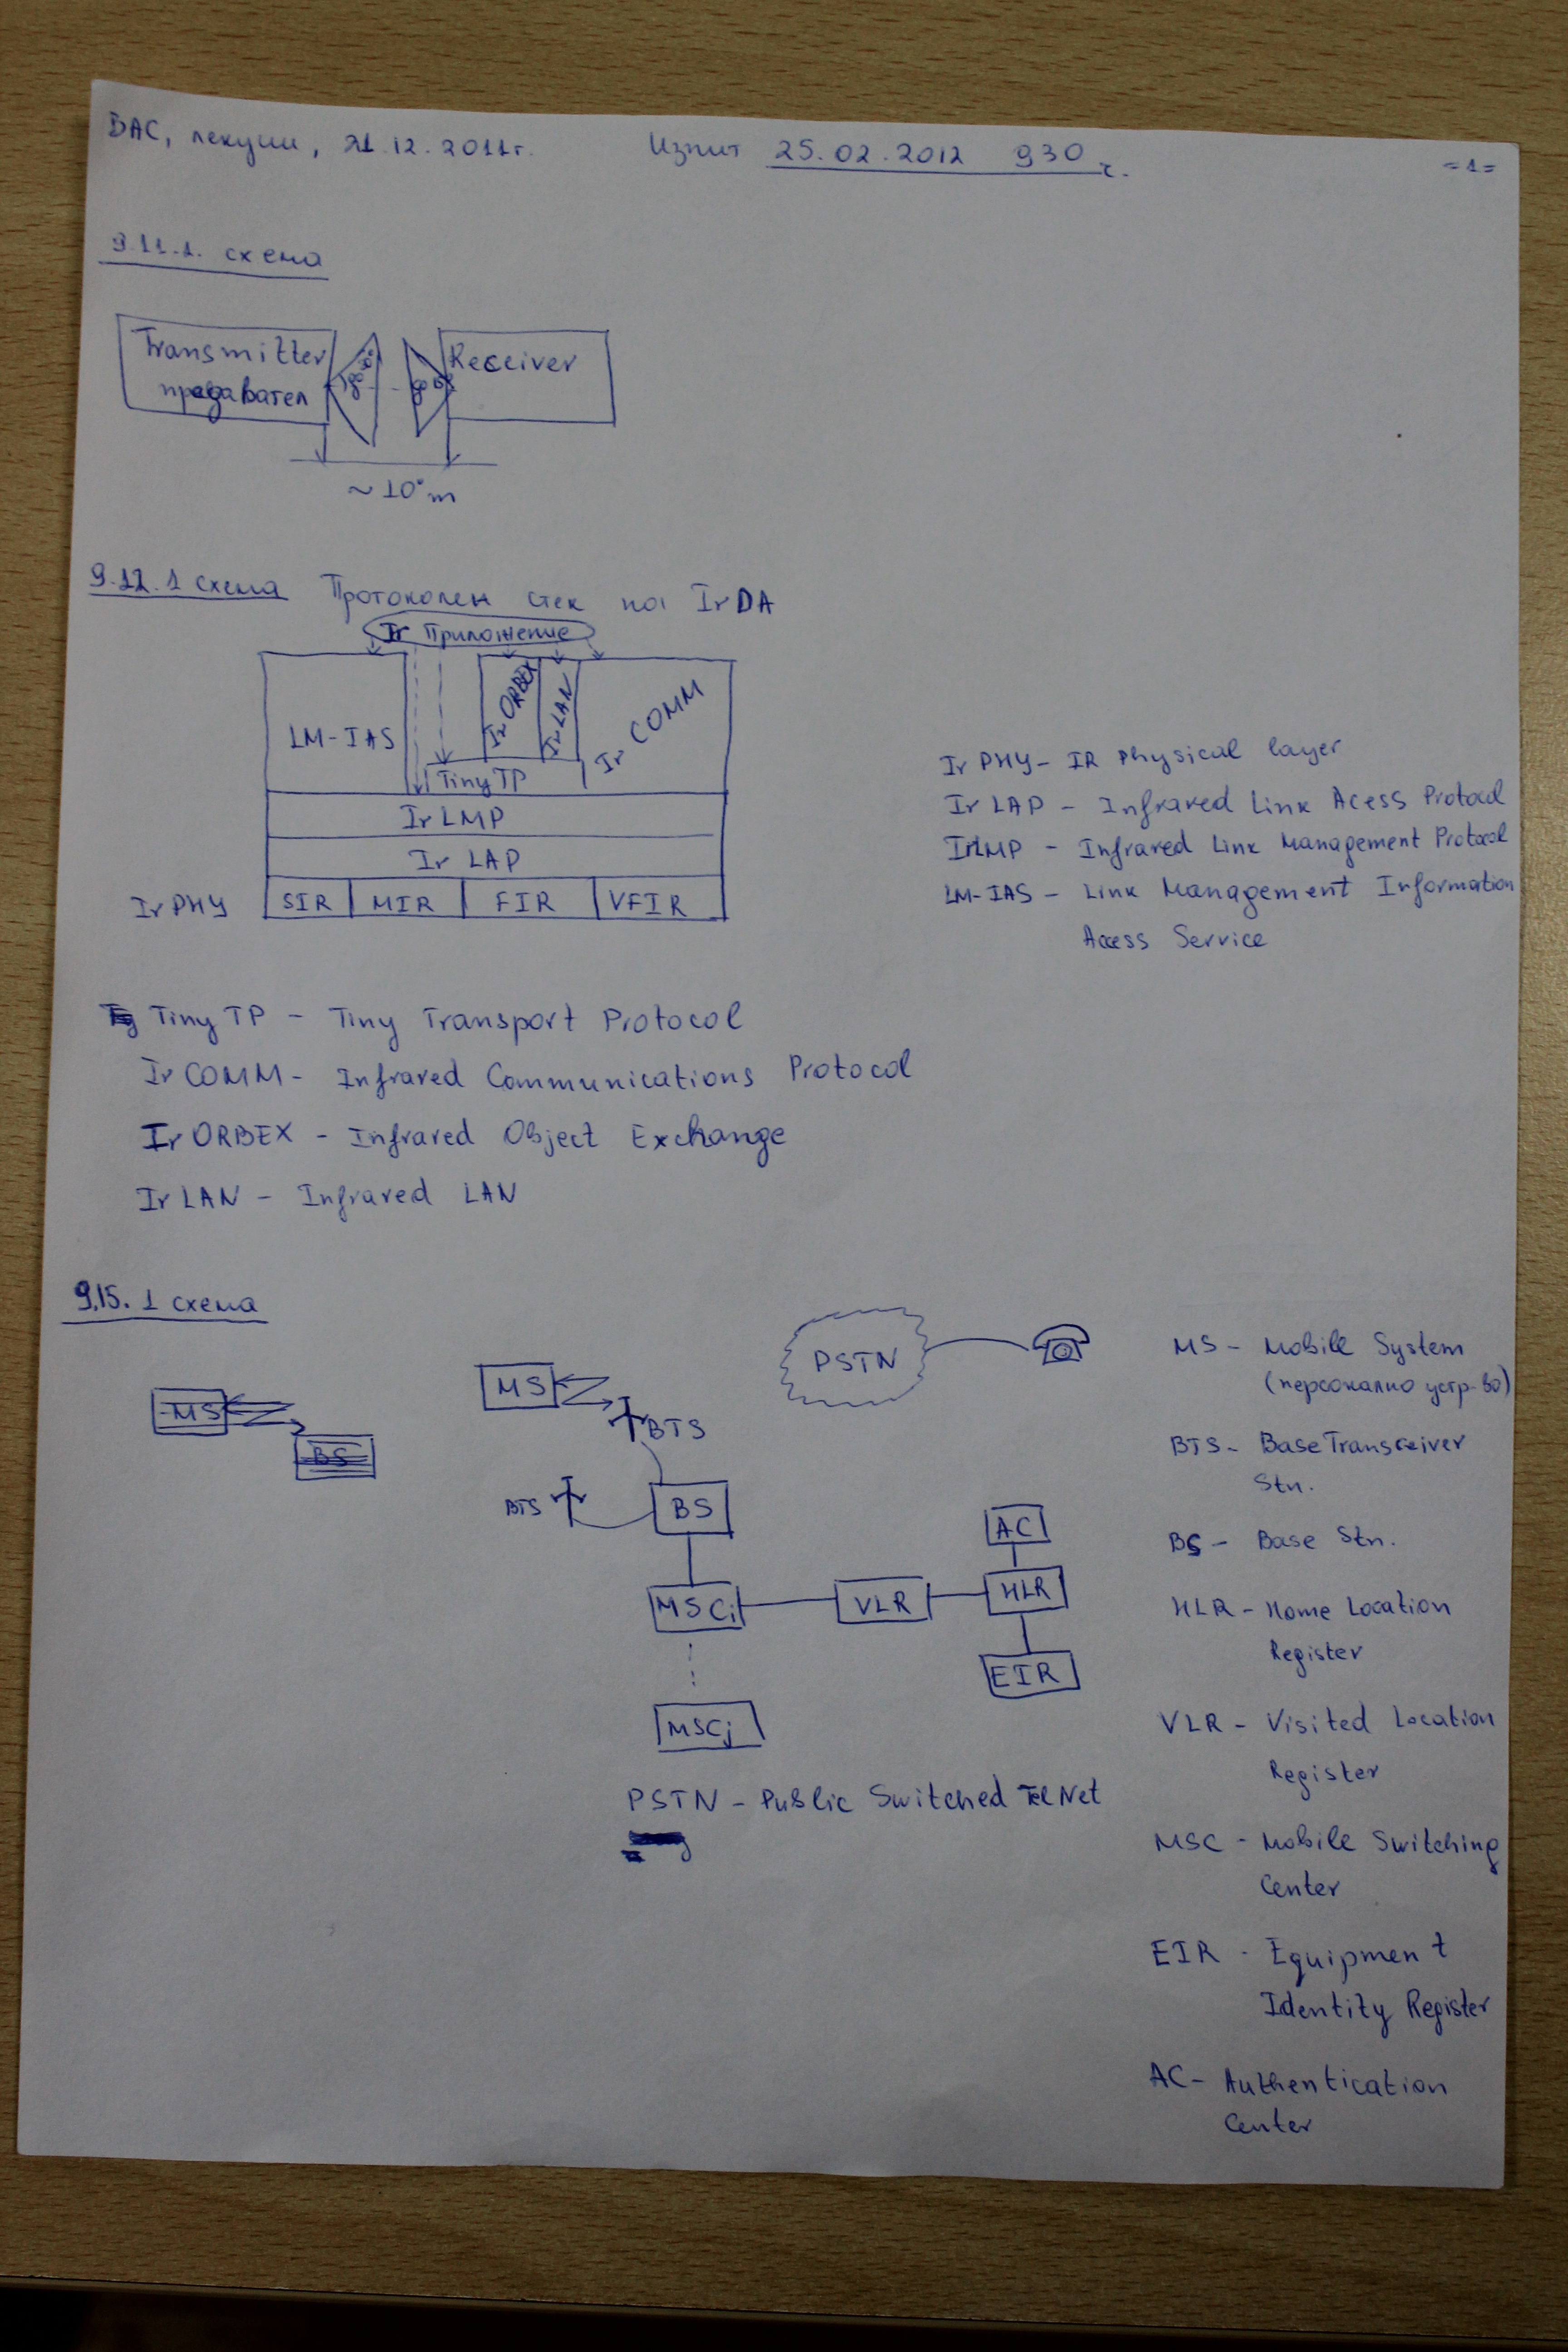 ВАС, лекции, 21.12.2011г. Изпит 25.02.2012 930 ч. =1=
9.11.1. схема
Transmitter
предавател
Receiver
~10°m
9.12.1 схема Протоколен стек на IrDA
Ir Приложение
LM-IAS
Ir ORBEX
Ir LAN
Ir COMM
Tiny TP
Ir LMP
Ir LAP
Ir PHY SIR MIR FIR VFIR
Ir PHY - IR Physical layer
Ir LAP - Infrared Link Acess Protocol
IrLMP - Infrared Link Management Protocol
LM-IAS - Link Management Information
Access Service
Tiny TP - Tiny Transport Protocol
Ir COMM - Infrared Communications Protocol
Ir ORBEX - Infrared Object Exchange
Ir LAN - Infrared LAN
9.15.1 схема
PSTN
MS
BTS
MS
BS
BTS
BS
AC
MSCi
VLR
HLR
EIR
MSCj
PSTN - Public Switched Tel Net
MS - Mobile System
(персонално устр-во)
BTS - Base Transceiver
Stn.
BS - Base Stn.
HLR - Home Location
Register
VLR - Visited Location
Register
MSC - Mobile Switching
Center
EIR - Equipment
Identity Register
AC - Authentication
Center